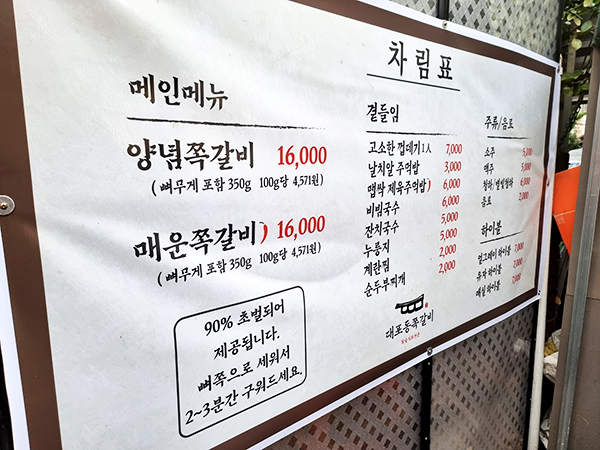 차림표
메인메뉴
양념쪽갈비 16,000
(뼈무게 포함 350g 100g당 4,571원)
매운쪽갈비) 16,000
(뼈무게 포함 350g 100g당 4,571원)
90% 초벌되어
제공됩니다.
뼈쪽으로 세워서
2~3분간 구워드세요.
곁들임
고소한 껍데기 1人 7,000
날치알 주먹밥 3,000
맵싹 제육주먹밥) 6,000
비빔국수 6,000
잔치국수 5,000
누룽지 5,000
계란찜 2,000
순두부찌개 2,000
대포동쪽갈비
주류/음료
소주 5,000
맥주 5,000
청하/별빛청하 6,000
음료 2,000
하이볼
얼그레이 하이볼 7,000
유자 하이볼 7,000
매실 하이볼 7,000